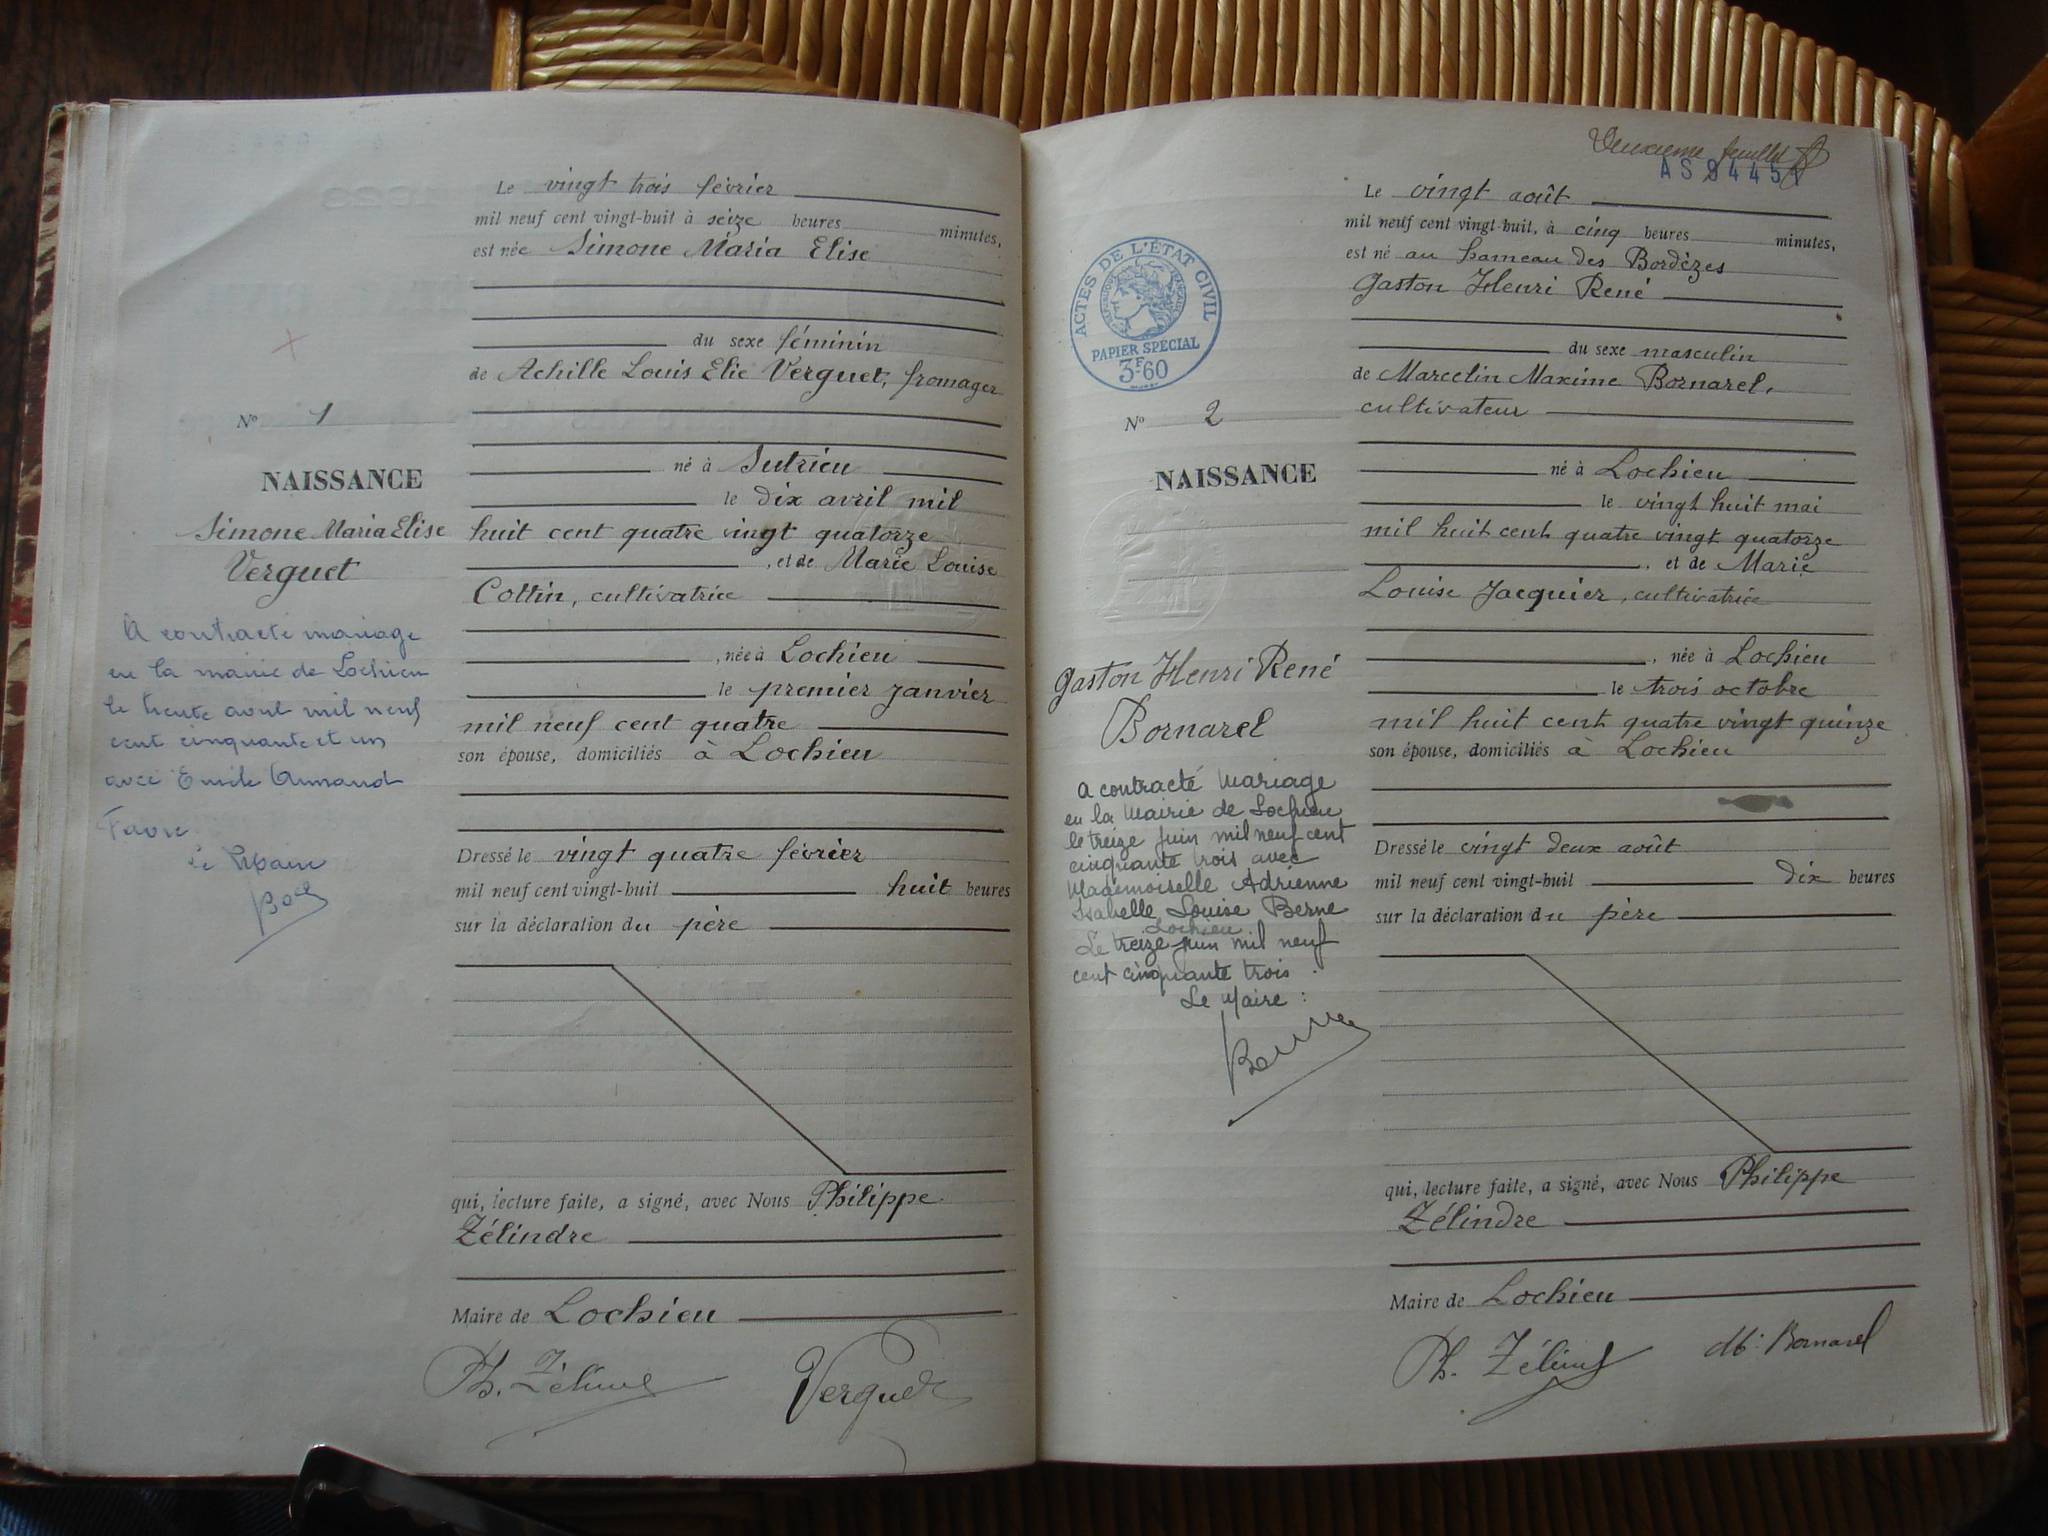 Le vingt trois février
mil neuf cent vingt-huit à seize heures minutes,
est née Simone Maria Elise
du sexe féminin
de Achille Louis Elie Verguet, fromager
Nº 1
né à Sutrieu
NAISSANCE
le dix avril mil
Simone Maria Elise
huit cent quatre vingt quatorze
Verguet
, et de Marie Louise
Cottin, cultivatrice
A contracté mariage
en la mairie de Lochieu
le trente août mil neuf
cent cinquante et un
avec Emile Armand
Favre
Le Maire
, née à Lochieu
le premier janvier
mil neuf cent quatre
son épouse, domiciliés à Lochieu
Dressé le vingt quatre février
mil neuf cent vingt-huit huit heures
sur la déclaration du père
qui, lecture faite, a signé, avec Nous Philippe
Zélindre
Maire de Lochieu
Ph. Zélind
Verguet
Deuxième feuillet
Le vingt août
mil neuf cent vingt-huit, à cinq heures minutes,
est né au hameau des Bordèzes
Gaston Henri René
ACTES DE L'ÉTAT CIVIL
RÉPUBLIQUE FRANÇAISE
PAPIER SPÉCIAL
3F60
du sexe masculin
de Marcelin Maxime Bornarel,
cultivateur
Nº 2
né à Lochieu
NAISSANCE
le vingt huit mai
mil huit cent quatre vingt quatorze
, et de Marie
Louise Jacquier, cultivatrice
, née à Lochieu
Gaston Henri René
Bornarel
le trois octobre
mil huit cent quatre vingt quinze
son épouse, domiciliés à Lochieu
A contracté Mariage
en la Mairie de Lochieu
le treize juin mil neuf cent
cinquante trois avec
Mademoiselle Adrienne
Isabelle Louise Berne
Lochieu
Le treize juin mil neuf
cent cinquante trois.
Le Maire :
Dressé le vingt deux août
mil neuf cent vingt-huit dix heures
sur la déclaration du père
qui, lecture faite, a signé, avec Nous Philippe
Zélindre
Maire de Lochieu
Ph. Zélind
M. Bornarel